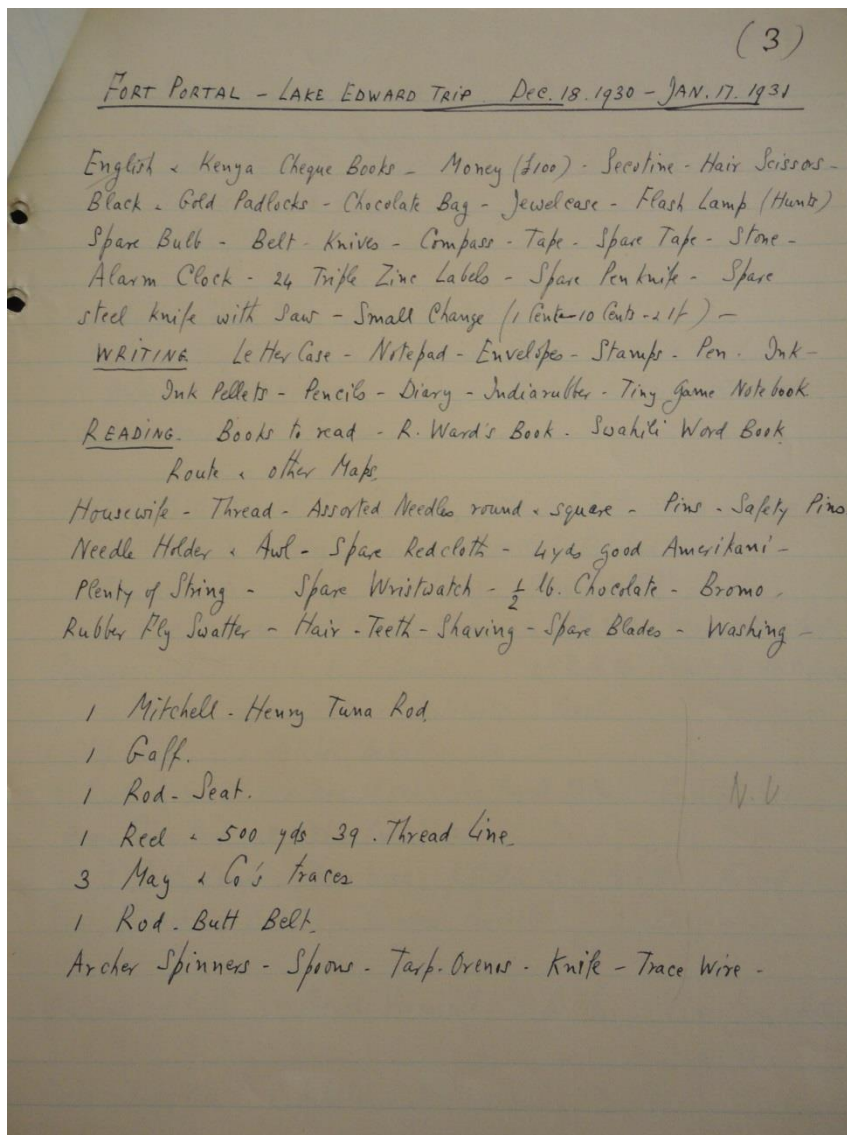 (3)
FORT PORTAL - LAKE EDWARD TRIP. DEC. 18. 1930 - JAN. 17. 1931
English & Kenya Cheque Books - Money (£100) - Secotine - Hair Scissors -
Black & Gold Padlocks - Chocolate Bag - Jewelcase - Flash Lamp (Hunts)
Spare Bulb - Belt - Knives - Compass - Tape - Spare Tape - Stone -
Alarm Clock - 24 Triple Zinc Labels - Spare Penknife - Spare
steel knife with Saw - Small Change (1 Cent - 10 Cents - & 1/-) -
WRITING Letter Case - Notepad - Envelopes - Stamps - Pen - Ink -
Ink Pellets - Pencils - Diary - Indiarubber - Tiny Game Notebook
READING. Books to read - R. Ward's Book - Swahili Word Book
Route & other Maps.
Housewife - Thread - Assorted Needles round & square - Pins - Safety Pins
Needle Holder & Awl - Spare Redcloth - 4yds good Amerikani -
Plenty of String - Spare Wristwatch - ½ lb. Chocolate - Bromo -
Rubber Fly Swatter - Hair - Teeth - Shaving - Spare Blades - Washing -
1 Mitchell-Henry Tuna Rod
1 Gaff.
1 Rod-Seat.
1 Reel & 500 yds 39. Thread Line.
3 May & Co's traces
1 Rod-Butt Belt.
Archer Spinners - Spoons - Tarp-Orenos - Knife - Trace Wire -